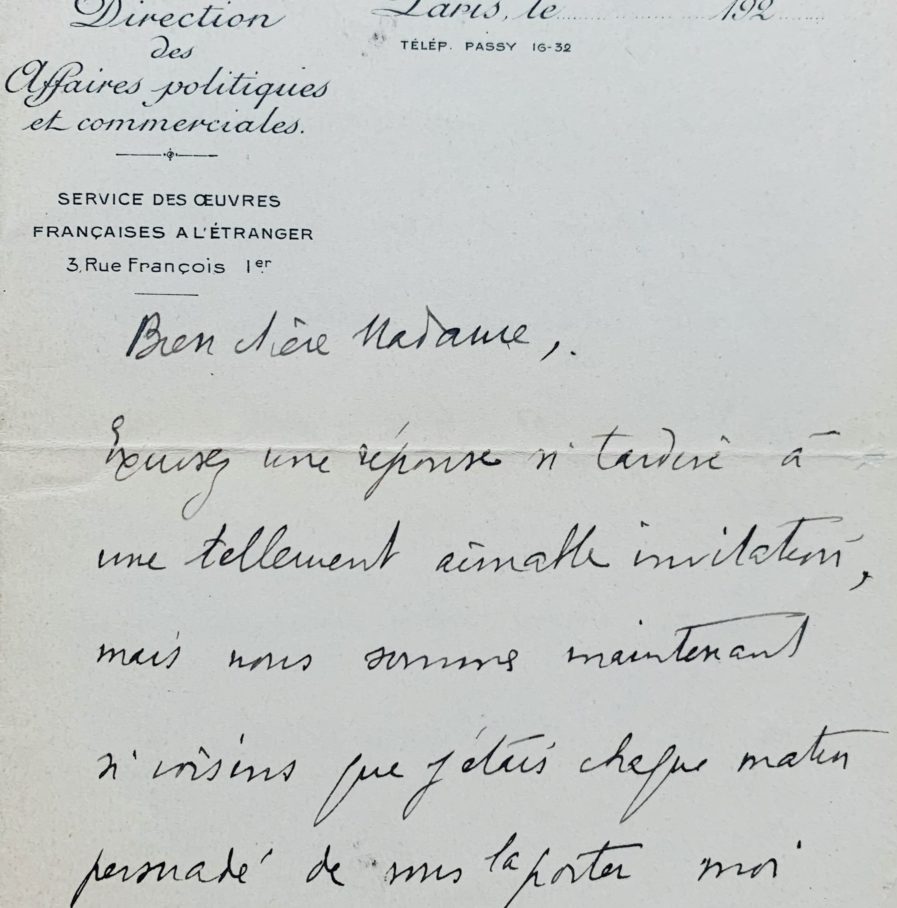 Direction
des
Affaires politiques
et commerciales.
Paris, le ........ 192....
TÉLÉP. PASSY 16-32
SERVICE DES ŒUVRES
FRANÇAISES A L'ÉTRANGER
3, Rue François Ier
Bien chère Madame,.
Excusez une réponse si tardive à
une tellement aimable invitation,
mais nous sommes maintenant
si voisins que j'étais chaque matin
persuadé de vous la porter moi